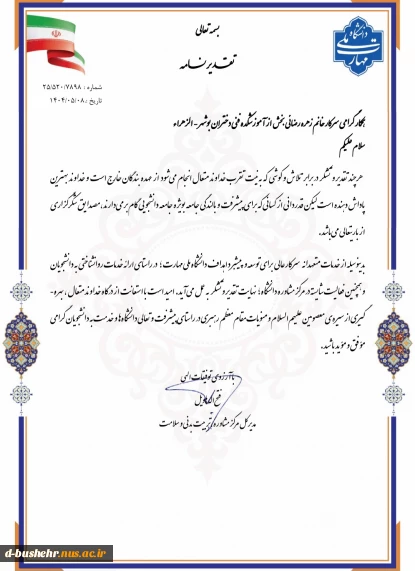 بسمه تعالی
تقدیرنامه
دانشگاه ملی مهارت
شماره : ۲۵/۵۲۰/۷۸۹۸
تاریخ : ۱۴۰۴/۰۵/۰۸
همکار گرامی سرکار خانم زهره رضائی بخش از آموزشکده فنی دختران بوشهر - الزهراء
سلام علیکم
هر چند تقدیر و تشکر در برابر تلاش و کوششی که به نیت تقرب خداوند متعال انجام می‌شود از عهده بندگان خارج است و خداوند بهترین
پاداش دهنده است لیکن قدردانی از کسانی که برای پیشرفت و بالندگی جامعه بویژه جامعه دانشجویی گام برمی‌دارند، مصداق شکرگزاری
از باریتعالی می‌باشد.
بدینوسیله از خدمات متعهدانه سرکارعالی برای توسعه و پیشبرد اهداف دانشگاه ملی مهارت؛ در راستای ارائه خدمات روانشناختی به دانشجویان و
همچنین فعالیت شایسته در مرکز مشاوره دانشگاه؛ نهایت تقدیر و تشکر به عمل می‌آید. امید است با استعانت از درگاه خداوند متعال، بهره-
گیری از سیره‌ی معصومین علیهم السلام و منویات مقام معظم رهبری در راستای پیشرفت و تعالی دانشگاه‌ها و خدمت به دانشجویان گرامی
موفق و مؤید باشید.
با آرزوی توفیقات الهی
فتح اله
مدیرکل مرکز مشاوره، تربیت بدنی و سلامت
d-bushehr.nus.ac.ir